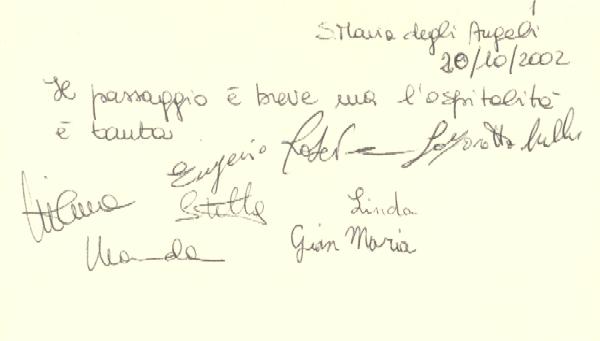 S. Maria degli Angeli
20/10/2002
Il passaggio è breve ma l'ospitalità
è tanta
Eugenio
Estella Linda
Wanda Gian Maria